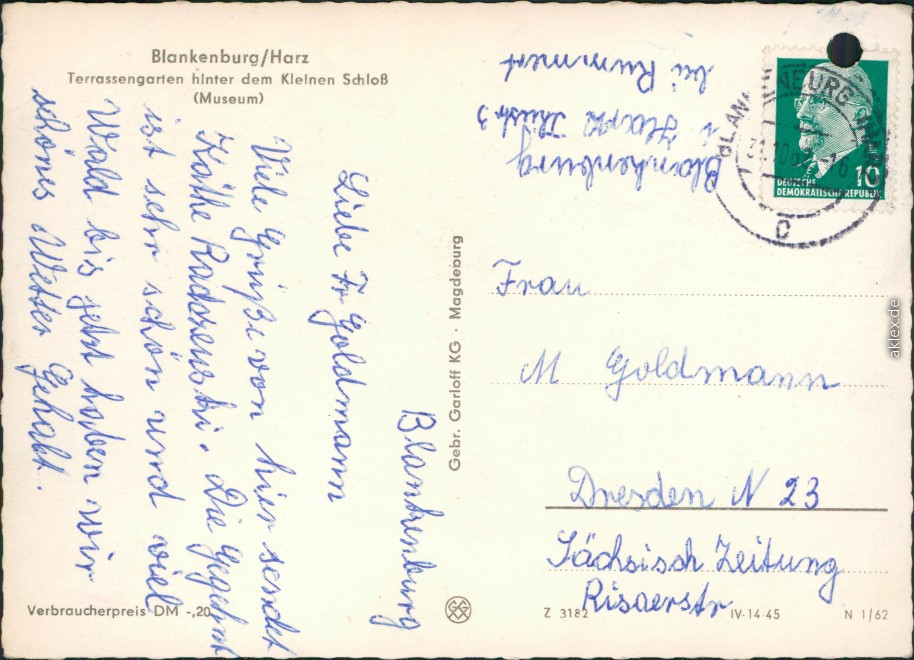 Blankenburg/Harz
Terrassengarten hinter dem Kleinen Schloß
(Museum)
Blankenburg
Liebe Fr Goldmann
Viele Grüße von hier sendet
Käthe
Die Gegend
ist sehr schön und viel
Wald bis jetzt haben wir
schönes Wetter Gehabt.
Verbraucherpreis DM -,20
Gebr. Garloff KG · Magdeburg
Blankenburg
bei Rummert
10
DEUTSCHE
DEMOKRATISCHE REPUBLIK
C
Frau
M Goldmann
Dresden N 23
Sächsisch Zeitung
Risaerstr
Z 3182
IV-14-45
N 1/62
aklex.de